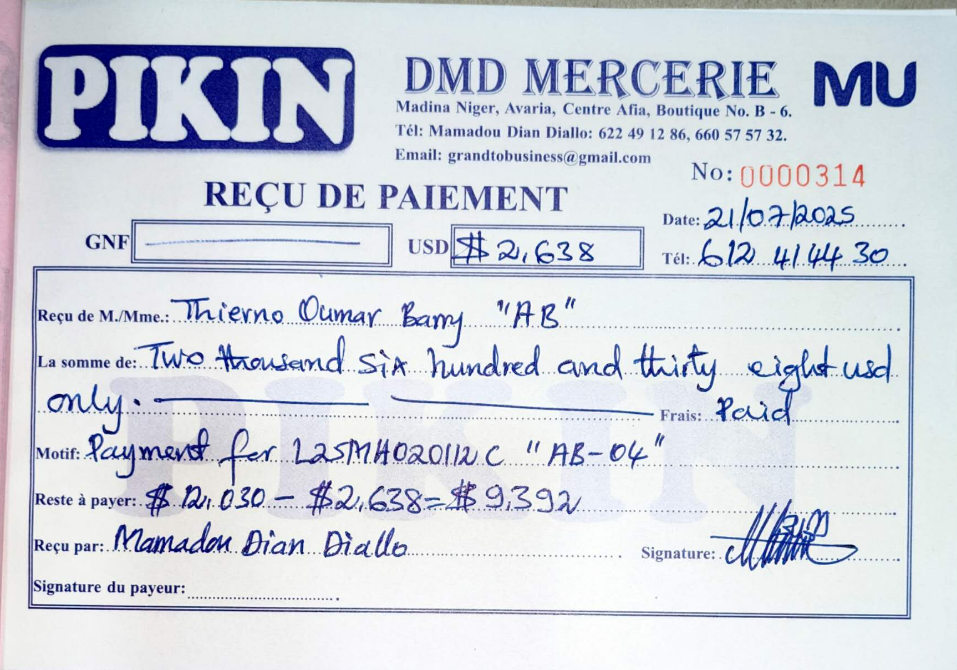 PIKIN
DMD MERCERIE
MU
Madina Niger, Avaria, Centre Afia, Boutique No. B - 6.
Tél: Mamadou Dian Diallo: 622 49 12 86, 660 57 57 32.
Email: grandtobusiness@gmail.com
No: 0000314
REÇU DE PAIEMENT
Date: 21/07/2025
GNF
USD $ 2,638
Tél: 612 41 44 30
Reçu de M./Mme.: Thierno Oumar Barry "AB"
La somme de: Two thousand six hundred and thirty eight usd
only. Frais: Paid
Motif: Payment for L25MH020112C "AB-04"
Reste à payer: $ 12,030 - $2,638 = $ 9,392
Reçu par: Mamadou Dian Diallo Signature:
Signature du payeur:
PIKIN